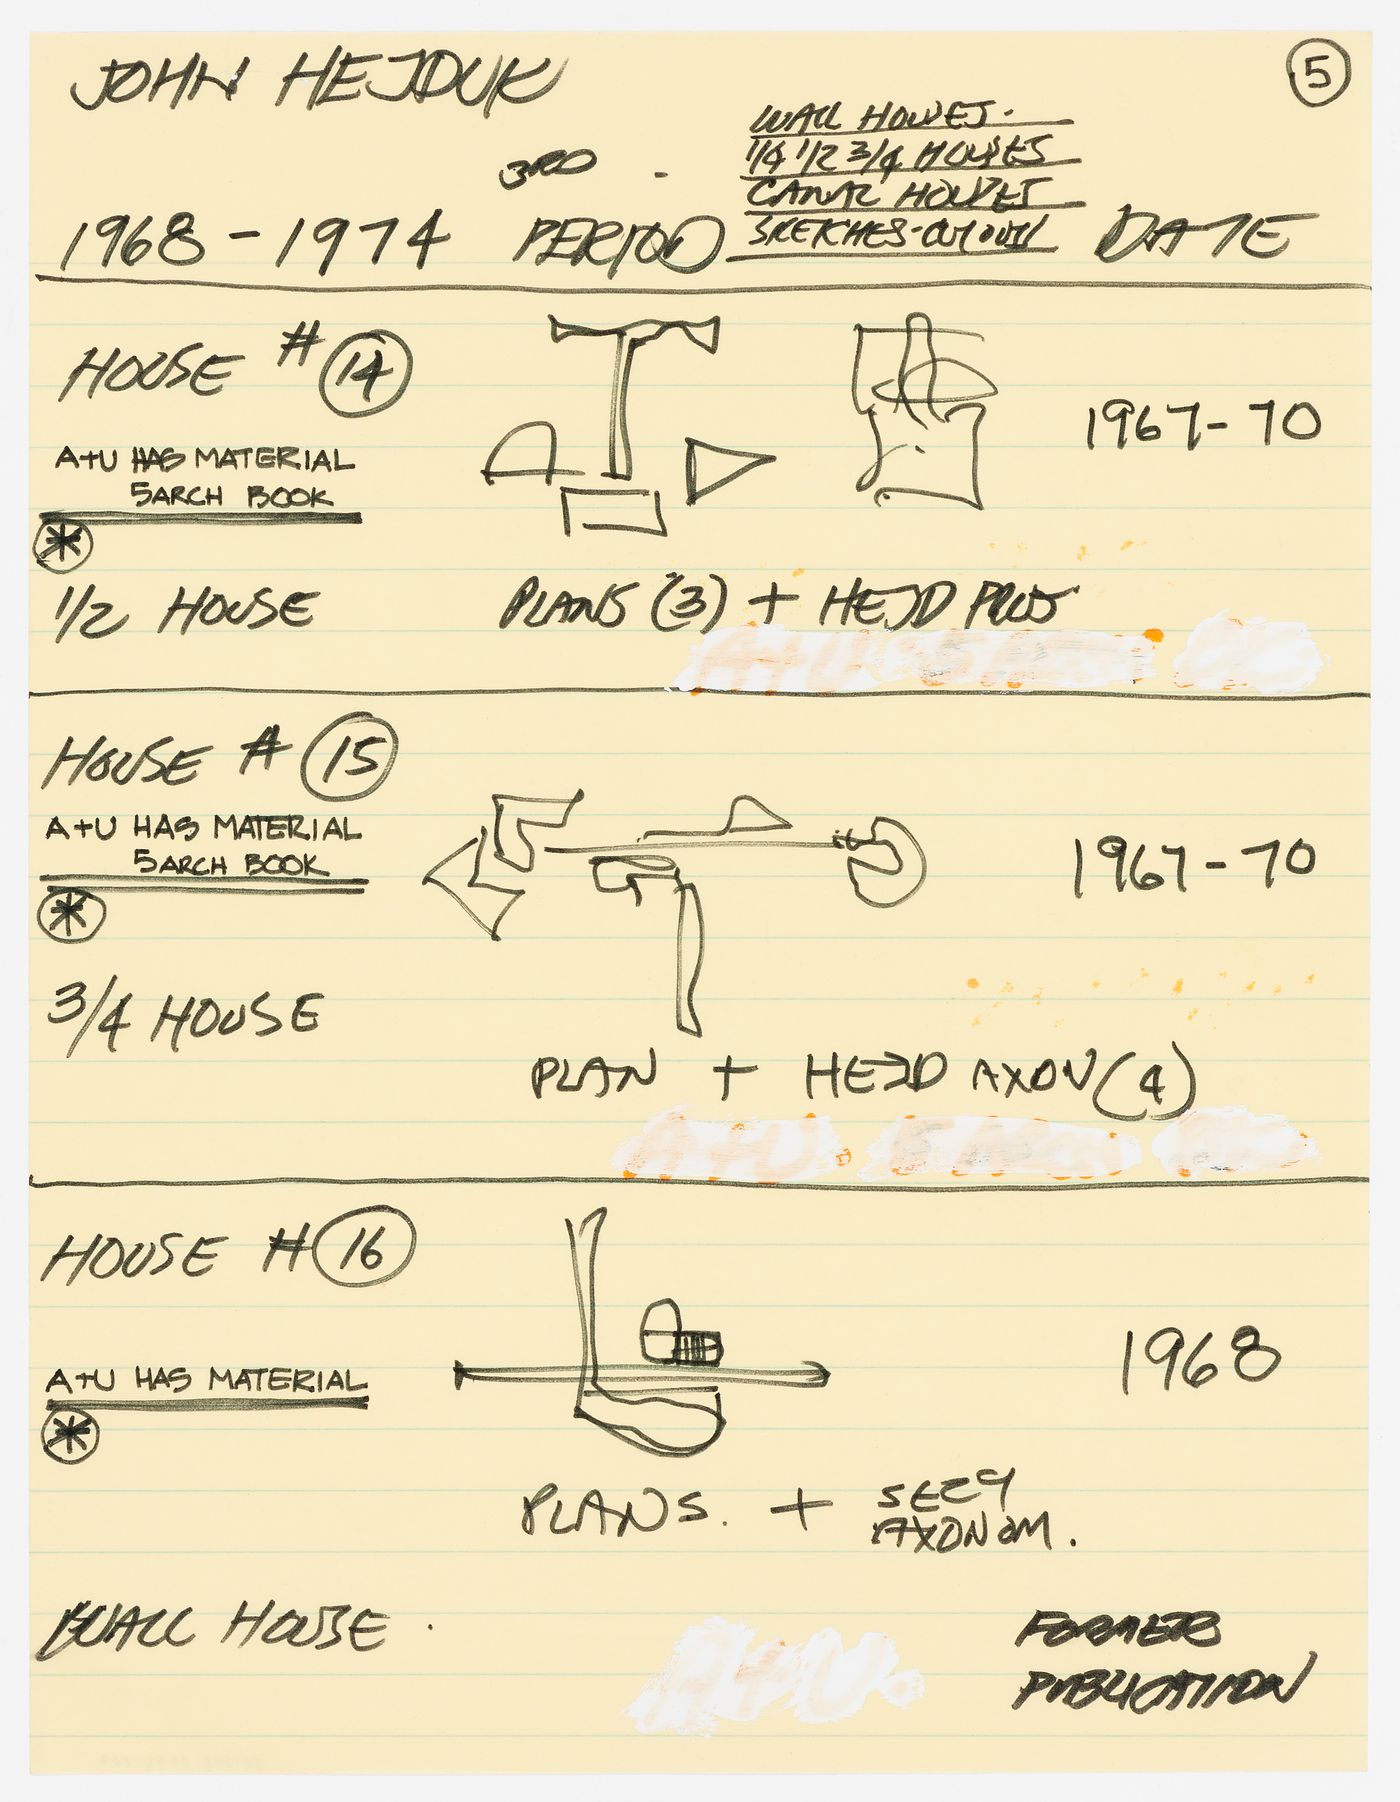 JOHN HEJDUK
5
WALL HOUSES.
1/4 1/2 3/4 HOUSES
CANAL HOUSES
3RD -
1968 - 1974 PERIOD SKETCHES- DATE
HOUSE # 14
1967-70
A+U HAS MATERIAL
5 ARCH BOOK
*
1/2 HOUSE PLANS (3) + HEJD
HOUSE # 15
A+U HAS MATERIAL
5 ARCH BOOK
1967-70
*
3/4 HOUSE
PLAN + HEJD AXON (4)
A+U 5 ARCH
HOUSE # 16
1968
A+U HAS MATERIAL
*
PLANS. +
AXONOM.
WALL HOUSE.
FORMER
PUBLICATION
A+U.